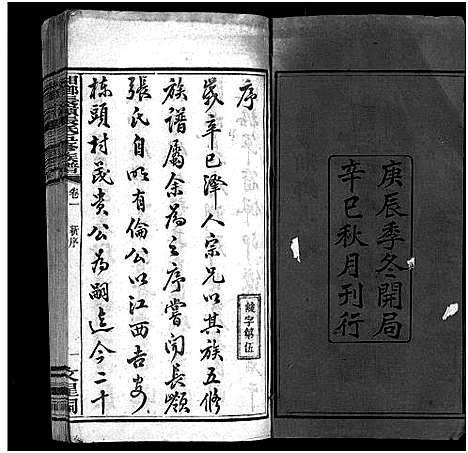 庚辰季冬開局
辛巳秋月刊行
序
歲辛巳澤人宗兄以其族五修
族譜屬余為之序嘗聞長嶺
張氏自明有倫公以江西吉安
棟頭村茂貴公為嗣迄今二十
卷一
新序
一